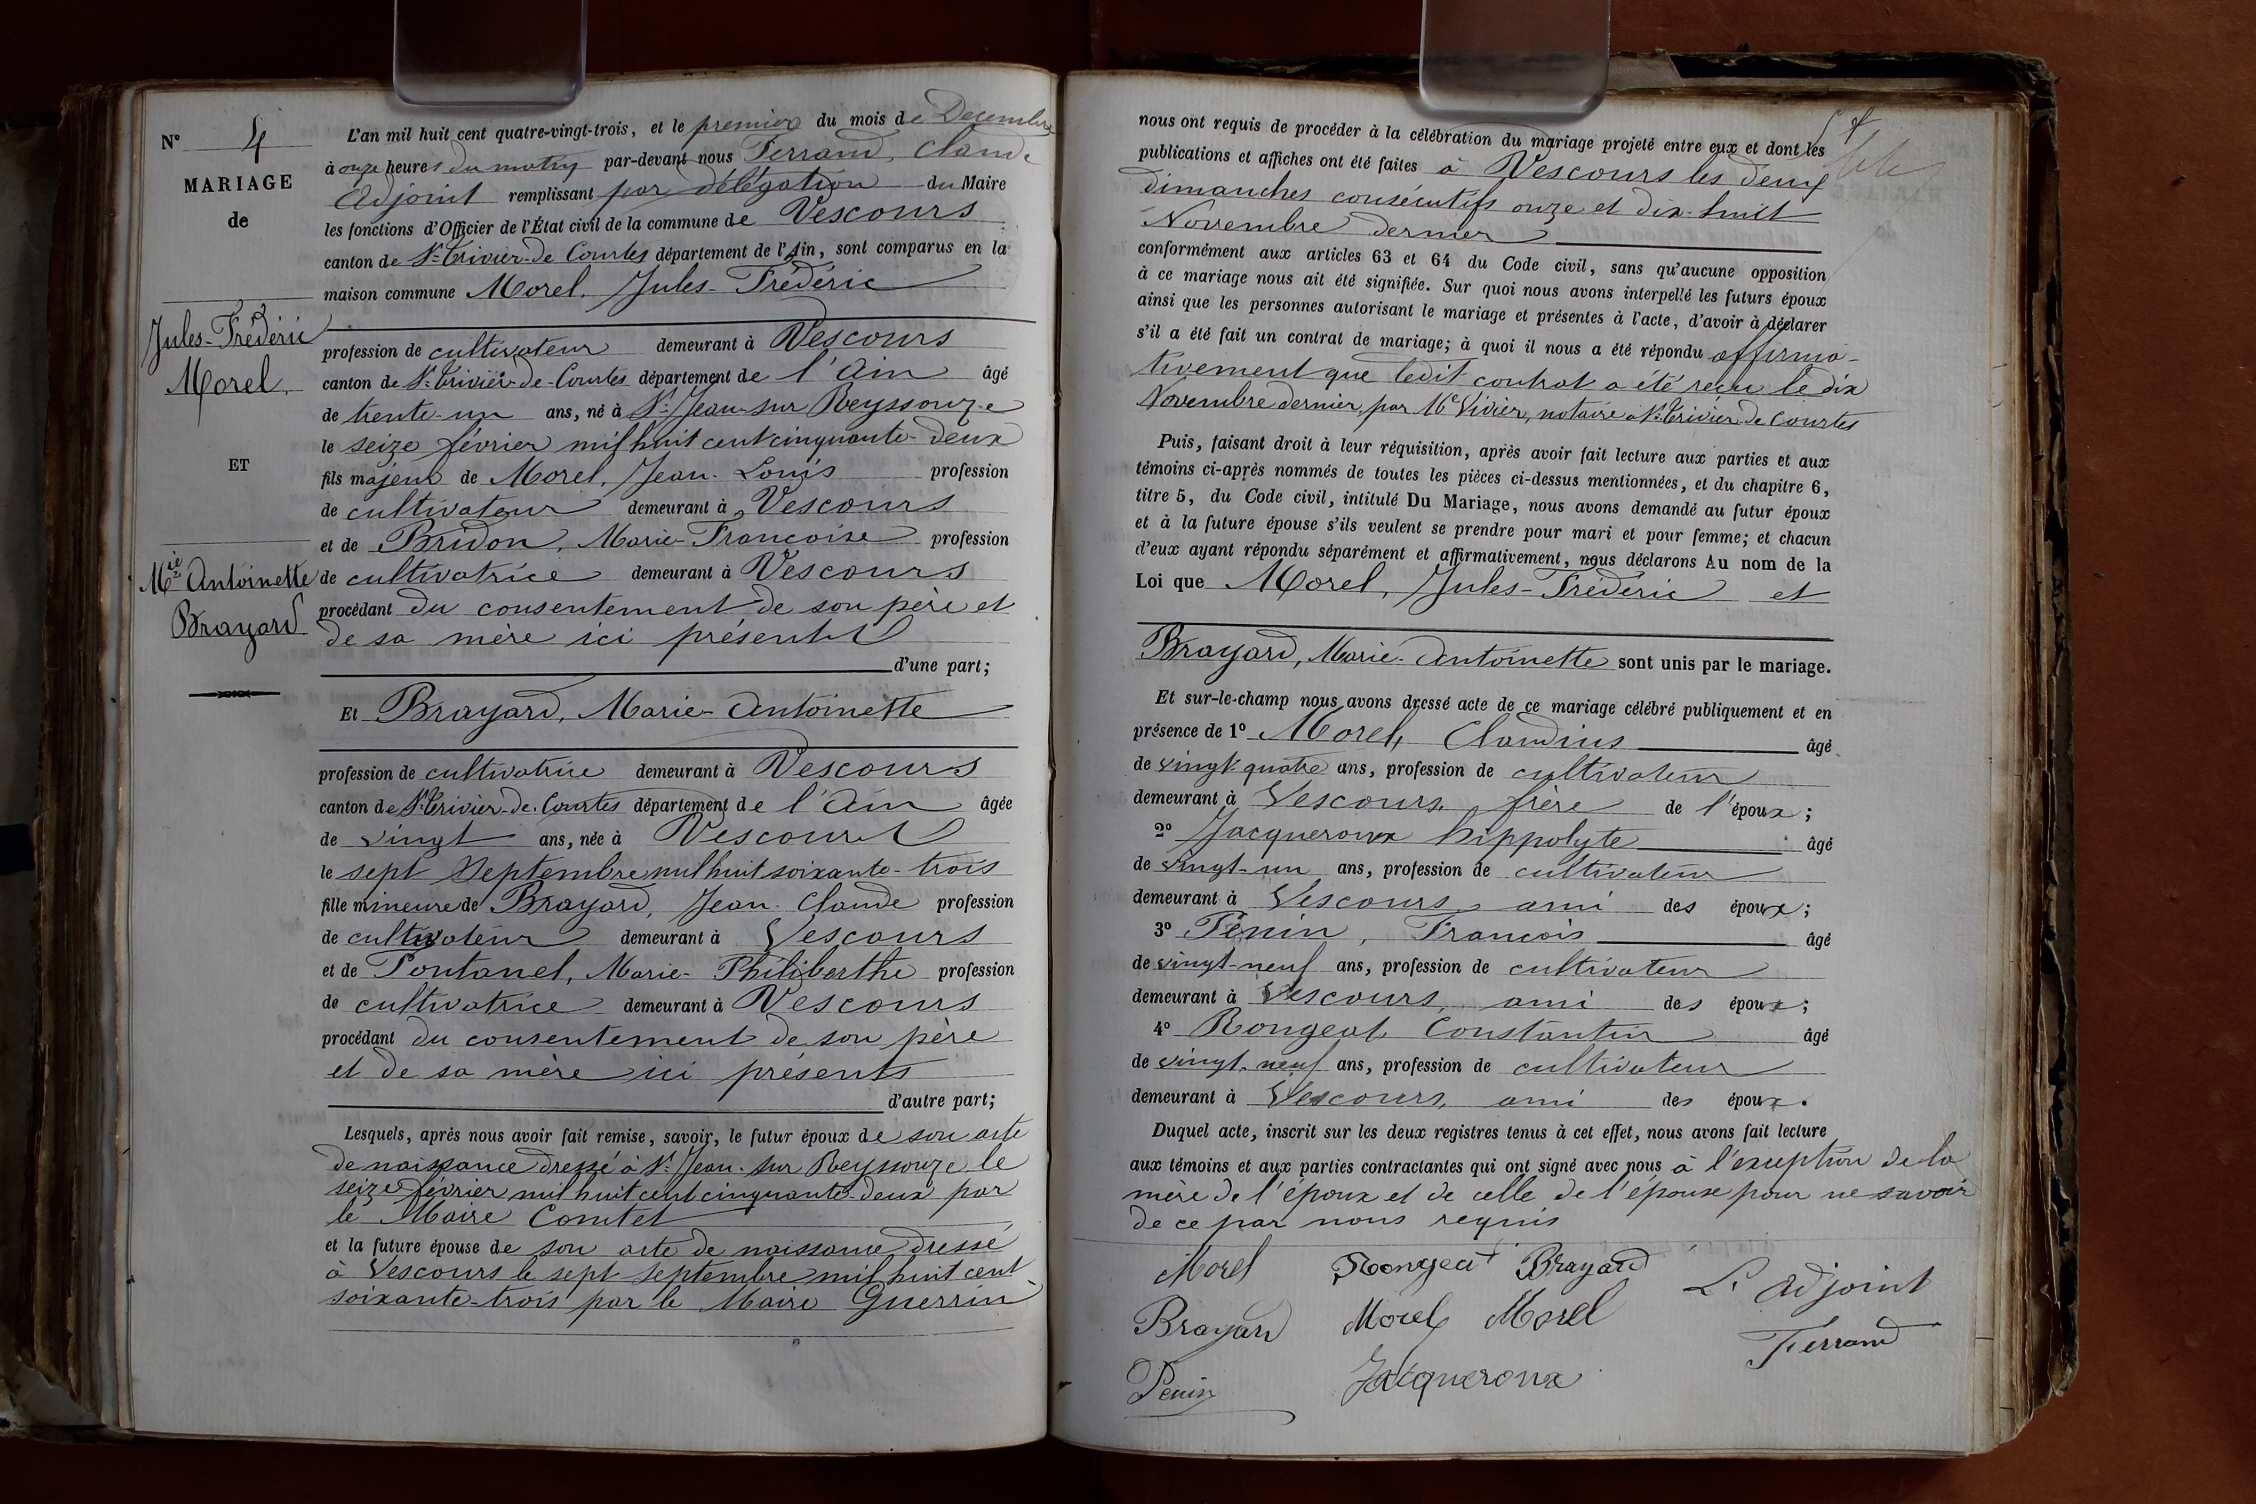 N° 4
MARIAGE
de
Jules-Frédéric
Morel,
ET
Mie Antoinette
Brayard
L'an mil huit cent quatre-vingt-trois, et le premier du mois de Décembre
à onze heures du matin par-devant nous Ferrand, Claude
Adjoint remplissant par délégation du Maire
les fonctions d'Officier de l'État civil de la commune de Vescours
canton de St-Trivier-de Courtes département de l'Ain, sont comparus en la
maison commune Morel, Jules-Frédéric
profession de cultivateur demeurant à Vescours
canton de St-Trivier-de-Courtes département de l'Ain âgé
de trente-un ans, né à St-Jean-sur Reyssouze
le seize février mil huit cent cinquante-deux
fils majeur de Morel, Jean-Louis profession
de cultivateur demeurant à Vescours
et de Bridon, Marie-Françoise profession
de cultivatrice demeurant à Vescours
procédant du consentement de son père et
de sa mère ici présents
d'une part;
Et Brayard, Marie-Antoinette
profession de cultivatrice demeurant à Vescours
canton de St-Trivier-de-Courtes département de l'Ain âgée
de vingt ans, née à Vescours
le sept Septembre mil huit soixante-trois
fille mineure de Brayard, Jean-Claude profession
de cultivateur demeurant à Vescours
et de Pontanel, Marie-Philiberthe profession
de cultivatrice demeurant à Vescours
procédant du consentement de son père
et de sa mère ici présents
d'autre part;
Lesquels, après nous avoir fait remise, savoir, le futur époux de son acte
de naissance dressé à St-Jean-sur Reyssouze le
seize février mil huit cent cinquante-deux par
le Maire Comtet
et la future épouse de son acte de naissance dressé
à Vescours le sept septembre mil huit cent
soixante-trois par le Maire Guerrin
nous ont requis de procéder à la célébration du mariage projeté entre eux et dont les
publications et affiches ont été faites à Vescours les deux
dimanches consécutifs onze et dix-huit
Novembre dernier
conformément aux articles 63 et 64 du Code civil, sans qu'aucune opposition
à ce mariage nous ait été signifiée. Sur quoi nous avons interpellé les futurs époux
ainsi que les personnes autorisant le mariage et présentes à l'acte, d'avoir à déclarer
s'il a été fait un contrat de mariage; à quoi il nous a été répondu affirma-
tivement que ledit contrat a été reçu le dix
Novembre dernier, par Me Vivier, notaire à St-Trivier-de Courtes
Puis, faisant droit à leur réquisition, après avoir fait lecture aux parties et aux
témoins ci-après nommés de toutes les pièces ci-dessus mentionnées, et du chapitre 6,
titre 5, du Code civil, intitulé Du Mariage, nous avons demandé au futur époux
et à la future épouse s'ils veulent se prendre pour mari et pour femme; et chacun
d'eux ayant répondu séparément et affirmativement, nous déclarons Au nom de la
Loi que Morel, Jules-Frédéric et
Brayard, Marie-Antoinette sont unis par le mariage.
Et sur-le-champ nous avons dressé acte de ce mariage célébré publiquement et en
présence de 1° Morel, Claudius âgé
de vingt quatre ans, profession de cultivateur
demeurant à Vescours, frère de l'époux;
2° Jacqueroux hippolyte âgé
de vingt-un ans, profession de cultivateur
demeurant à Vescours, ami des époux;
3° Pénin, François âgé
de vingt-neuf ans, profession de cultivateur
demeurant à Vescours, ami des époux;
4° Rongeat Constantin âgé
de vingt-neuf ans, profession de cultivateur
demeurant à Vescours, ami des époux.
Duquel acte, inscrit sur les deux registres tenus à cet effet, nous avons fait lecture
aux témoins et aux parties contractantes qui ont signé avec nous à l'exception de la
mère de l'époux et de celle de l'épouse pour ne savoir
de ce par nous requis
Morel Rongeat Brayard
L'adjoint
Brayard Morel Morel
Ferrand
Penin Jacqueroux